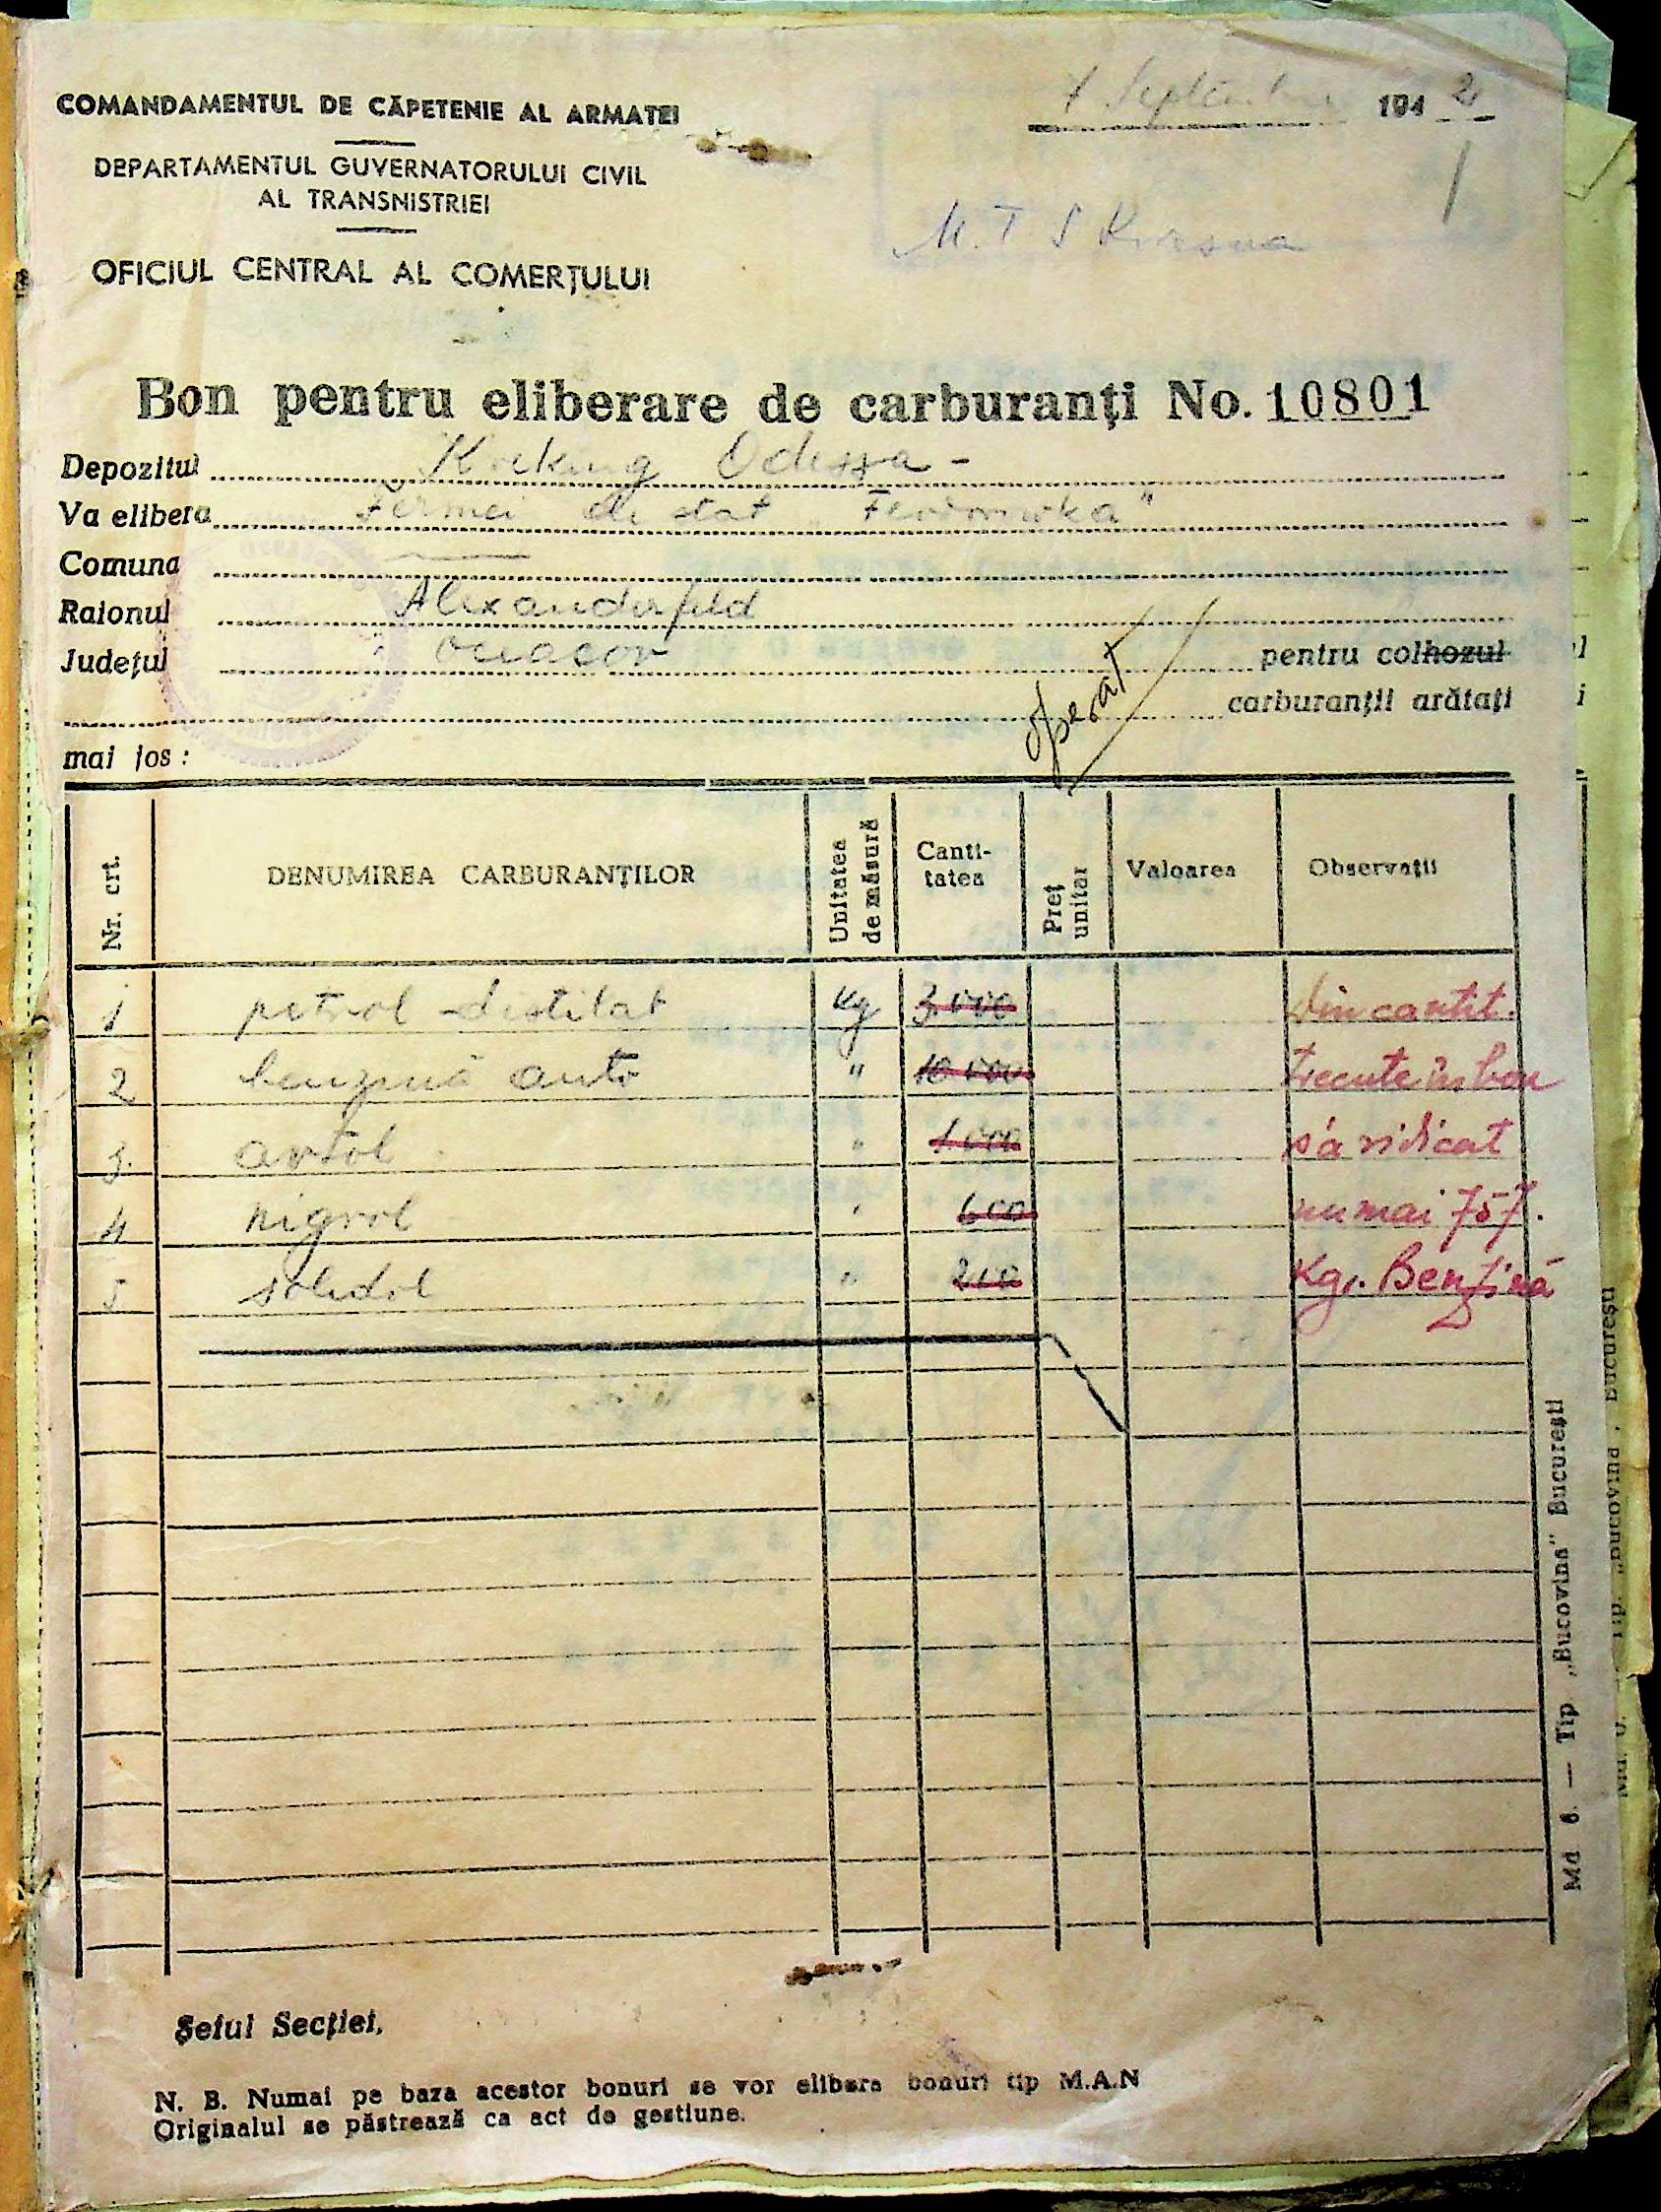 COMANDAMENTUL DE CĂPETENIE AL ARMATEI
DEPARTAMENTUL GUVERNATORULUI CIVIL
AL TRANSNISTRIEI
OFICIUL CENTRAL AL COMERŢULUI
7 Septembrie 1942
M.T.S
Bon pentru eliberare de carburanţi No. 10801
Depozitul Odessa -
Va elibera Fermei de stat
Comuna
Raionul Alexanderfeld
Judeţul Oceacov pentru colhozul
carburanţii arătaţi
mai jos :
operat
Nr. crt. DENUMIREA CARBURANŢILOR Unitatea de măsură Canti-tatea Preţ unitar Valoarea Observaţii
1 petrol distilat kg 3.000 Din cantit.
2 benzină auto " 10.000 trecute în bon
3. avtol " 1.000 s'a ridicat
4 nigrol " 600 numai 757.
5 solidol " 200 Kg. Benzină
Md 6. — Tip „Bucovina" Bucureşti
Şeful Secţiei,
N. B. Numai pe baza acestor bonuri se vor elibera bonuri tip M.A.N
Originalul se păstrează ca act de gestiune.